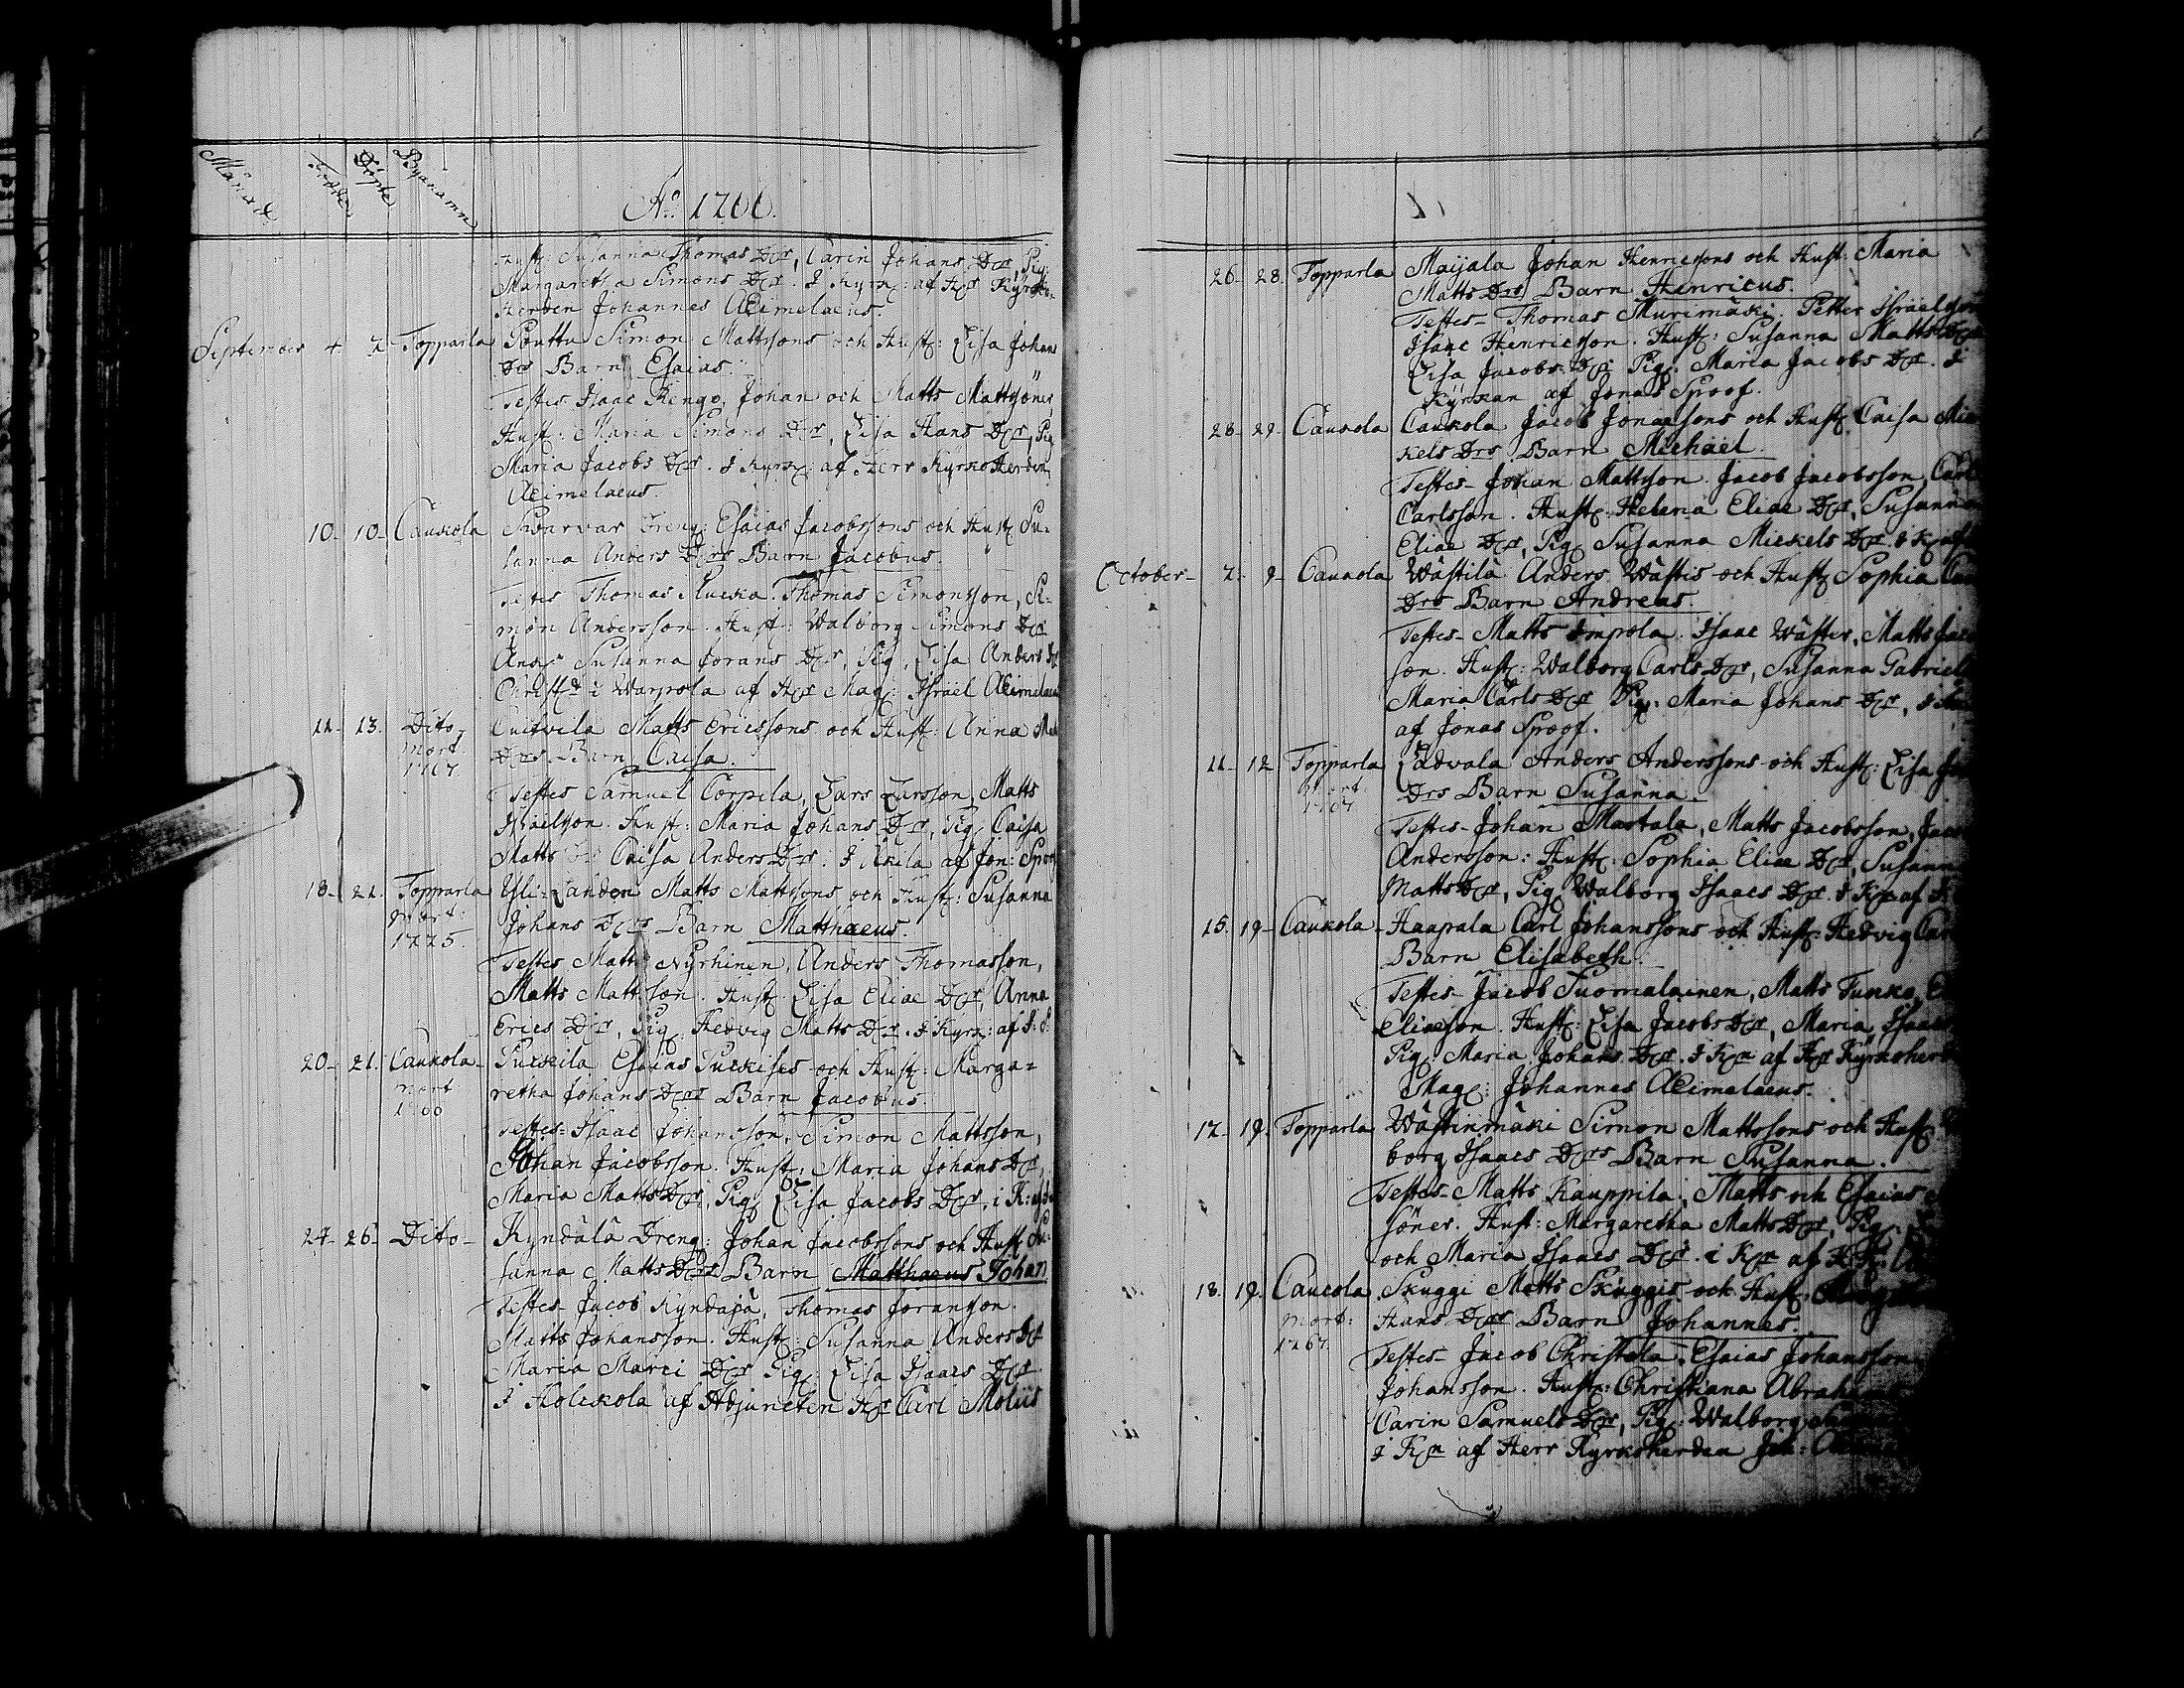 Månad Födde Döpte Byanamn
Ao. 1766.
Hust: Susanna Thomas Dr, Carin Johans Dr, Pig:
Margaretha Simons Dr. I Kyrk: af Hr Kyrko-
Herden Johannes Aeimelaeus.
September 4. 7. Topparla Pouttu Simon Mattssons och Hust: Lisa Johans
Drs Barn Esaias.
Testes Isaac Rengo, Johan och Matts Mattsöner,
Hust: Maria Simons Dr, Lisa Hans Dr, Pig
Maria Jacobs Dr. I Kyrk: af Herr KyrkoHerden
Aeimelaeus.
10. 10. Caukola Dreng: Esaias Jacobssons och Hust: Su-
sanna Anders Drs Barn Jacobus.
Testes Thomas Thomas Simonsson, Si-
mon Andersson. Hust: Walborg Simons Dr
Susanna Jorans Dr, Pig, Lisa Anders Dr
i Warpola af Hr Mag: Israel Aeimelaeus
11. 13. Dito Matts Ericssons och Hust: Anna
mort. Drs Barn Caisa.
1767.
Testes Samuel Corpela, Lars Larsson, Matts
Israelsson. Hust: Maria Johans Dr, Pig Caisa
Matts Caisa Anders Dr. I af Jon: Spoof
18. 21. Topparla Ylli-Landen Matts Mattssons och Hust: Susanna
mort: Johans Drs Barn Matthaeus.
1775.
Testes Matts Nyrhinen, Anders Thomasson,
Matts Mattsson. Hust: Lisa Eliae Dr, Anna
Erics Dr, Pig: Hedvig Matts Dr. I Kyrk: af J: S:
20. 21. Caukola Puckila Esaias Puckises och Hust: Marga-
mort retha Johans Drs Barn Jacobus.
1766
Testes Isaac Johansson, Simon Mattsson,
Johan Jacobsson. Hust: Maria Johans Dr,
Maria Matts Dr, Pig Lisa Jacobs Dr, i K:
24. 26. Dito Kyndälä Dreng: Johan Jacobssons och Hust Su-
sanna Matts Drs Barn Matthaeus Johan
Testes Jacob Thomas Joransson.
Matts Johansson. Hust: Susanna Anders Dr
Maria Marci Dr Pig: Lisa Isaacs Dr
I af Adjuncten Hr Carl Moliis
26. 28. Topparla Maijala Johan Henricsons och Hust: Maria
Matts Drs Barn Henricus.
Testes Thomas Murimäki. Petter Israelsson
Isaac Henricsson. Hust: Susanna Matts Dr
Lisa Jacobs Dr Pig: Maria Jacobs Dr. I
Kyrkan af Jonas Spoof.
28. 29. Caukola Caukola Jacob Jonaesons och Hust: Caisa Mic-
kels Drs Barn Michael.
Testes Johan Mattson. Jacob Jacobsson, Carl
Carlsson. Hust: Helena Eliae Dr, Susanna
Eliae Dr, Pig Susanna Mickels Dr
October 7. 9. Caukola Wästilä Anders Wästis och Hust: Sophia
Drs Barn Andreas.
Testes Matts Impola. Isaac Wäster, Matts
son. Hust: Walborg Carls Dr, Susanna Gabriels
Maria Carls Dr Pig: Maria Johans Dr,
af Jonas Spoof.
11. 12 Topparla Ladvala Anders Anderssons och Hust: Lisa
mort. Drs Barn Susanna.
1767
Testes Johan Mastala, Matts Jacobsson,
Andersson: Hust: Sophia Eliae Dr, Susanna
Matts Dr, Pig Walborg Isaacs Dr. I Kn af
15. 19. Caukola Haapala Carl Johanssons och Hust: Hedvig
Barn Elisabeth.
Testes Jacob Suomalainen, Matts Funko,
Eliaeson. Hust: Lisa Jacobs Dr, Maria Isaacs
Pig: Maria Johans Dr. I Kn af Hr Kyrkoher
Mag: Johannes Aeimelaeus.
17. 19. Topparla Wästinmäki Simon Mattssons och Hust
borg Isaacs Drs Barn Susanna.
Testes Matts Kauppila, Matts och Esaias
söner. Hust: Margaretha Matts Dr, Pig
och Maria Isaacs Dr. i Kn af
18. 19. Caucola Skuggi Matts Skuggis och Hust:
mort: Hans Drs Barn Johannes.
1767.
Testes Jacob Christola, Esaias Johansson
Johansson. Hust: Christiana Abrahams
Carin Samuels Dr, Pig: Walborg
I Kn af Herr Kyrkoherden Joh: